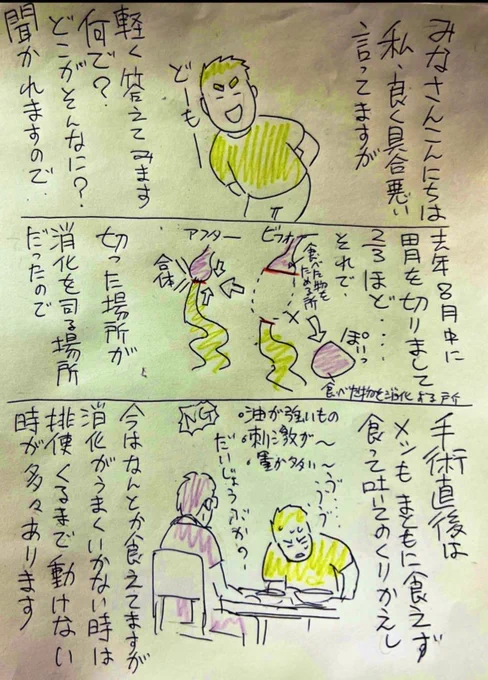 みなさんこんにちは
私、良く具合悪い
言ってますが
どーも
軽く答えてみます
何で?
どこがそんなに?
聞かれますので
去年8月中に
胃を切りまして
2/3ほど‥‥
それで、
ビフォー
食べた物を
ためる所
ぽいっ
食べた物を消化する所
アフター
合体
切った場所が
消化を司る場所
だったので
手術直後は
メシもまともに食えず
食って吐いてのくりかえし
・油が強いもの
・刺激が〜
・量が多い〜
NG
ううう
だいじょうぶか?
今はなんとか食えてますが
消化がうまくいかない時は
排便くるまで動けない
時が多々あります